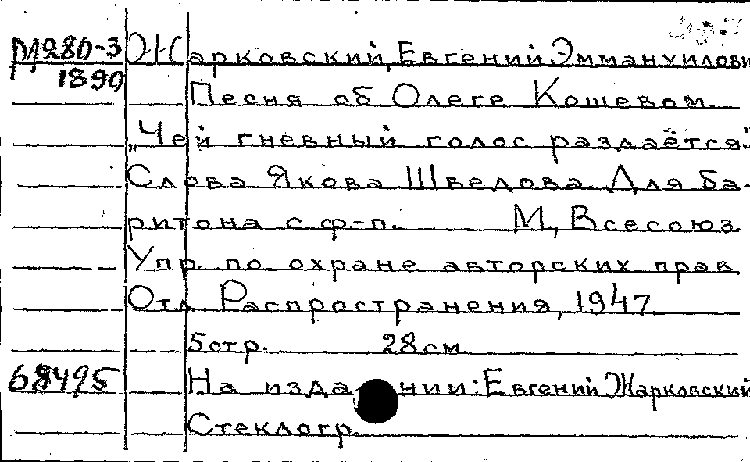 М280-3 Жарковский, Евгений Эммануилови
1890
Песня об Олеге Кошевом.
"Чей гневный голос раздаётся."
Слова Якова Шведова. Для ба-
ритона с ф-п. М., Всесоюз.
Упр. по охране авторских прав.
Отд. Распространения, 1947
5 стр. 28 см
68495 На издании: Евгений Жарковский
Стеклогр.